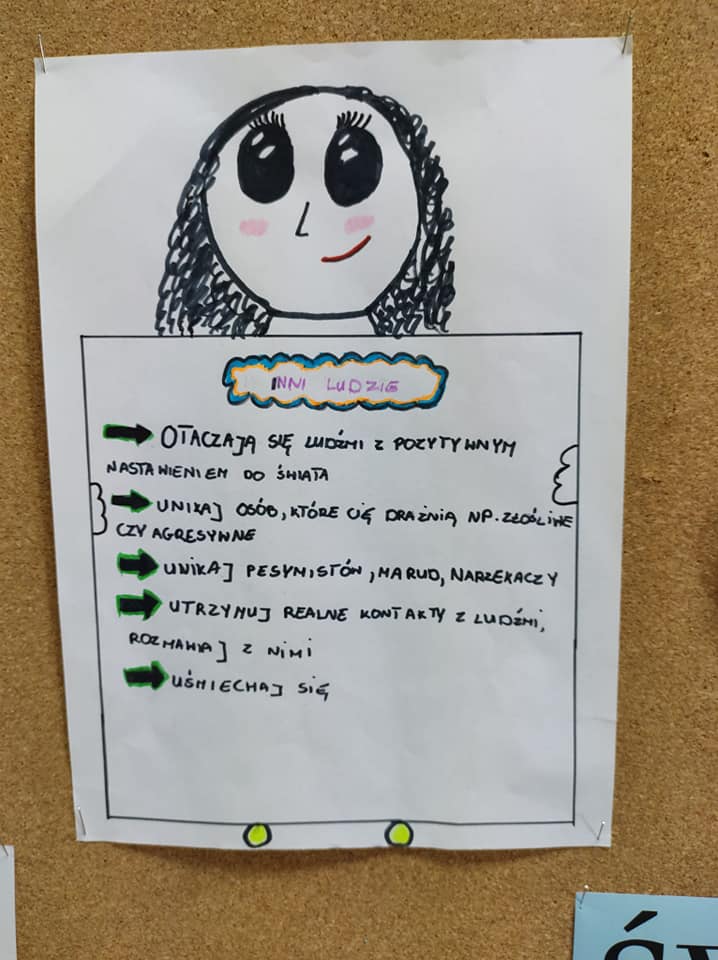 INNI LUDZIE
OTACZAJĄ SIĘ LUDŹMI Z POZYTYWNYM
NASTAWIENIEM DO ŚWIATA
UNIKAJ OSÓB, KTÓRE CIĘ DRAŻNIĄ NP. ZŁOŚLIWE
CZY AGRESYWNE
UNIKAJ PESYMISTÓW, MARUD, NARZEKACZY
UTRZYMUJ REALNE KONTAKTY Z LUDŹMI,
ROZMAWIAJ Z NIMI
UŚMIECHAJ SIĘ